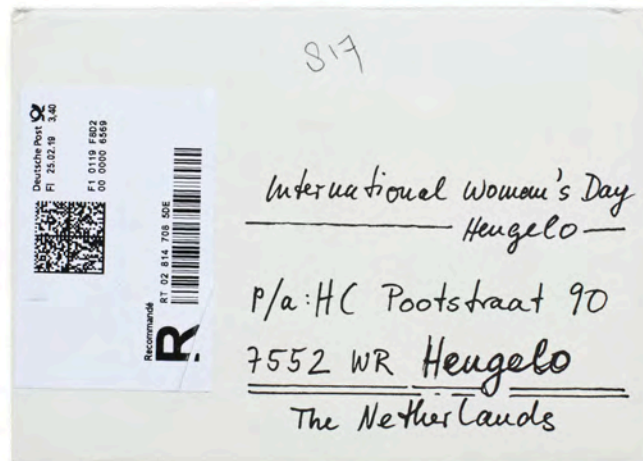 S17
Deutsche Post
FI 25.02.19 3,40
F1 0119 F8D2
00 0000 6569
Recommandé
R
RT 02 814 708 5DE
International Woman's Day
Hengelo
P/a: HC Pootstraat 90
7552 WR Hengelo
The Netherlands